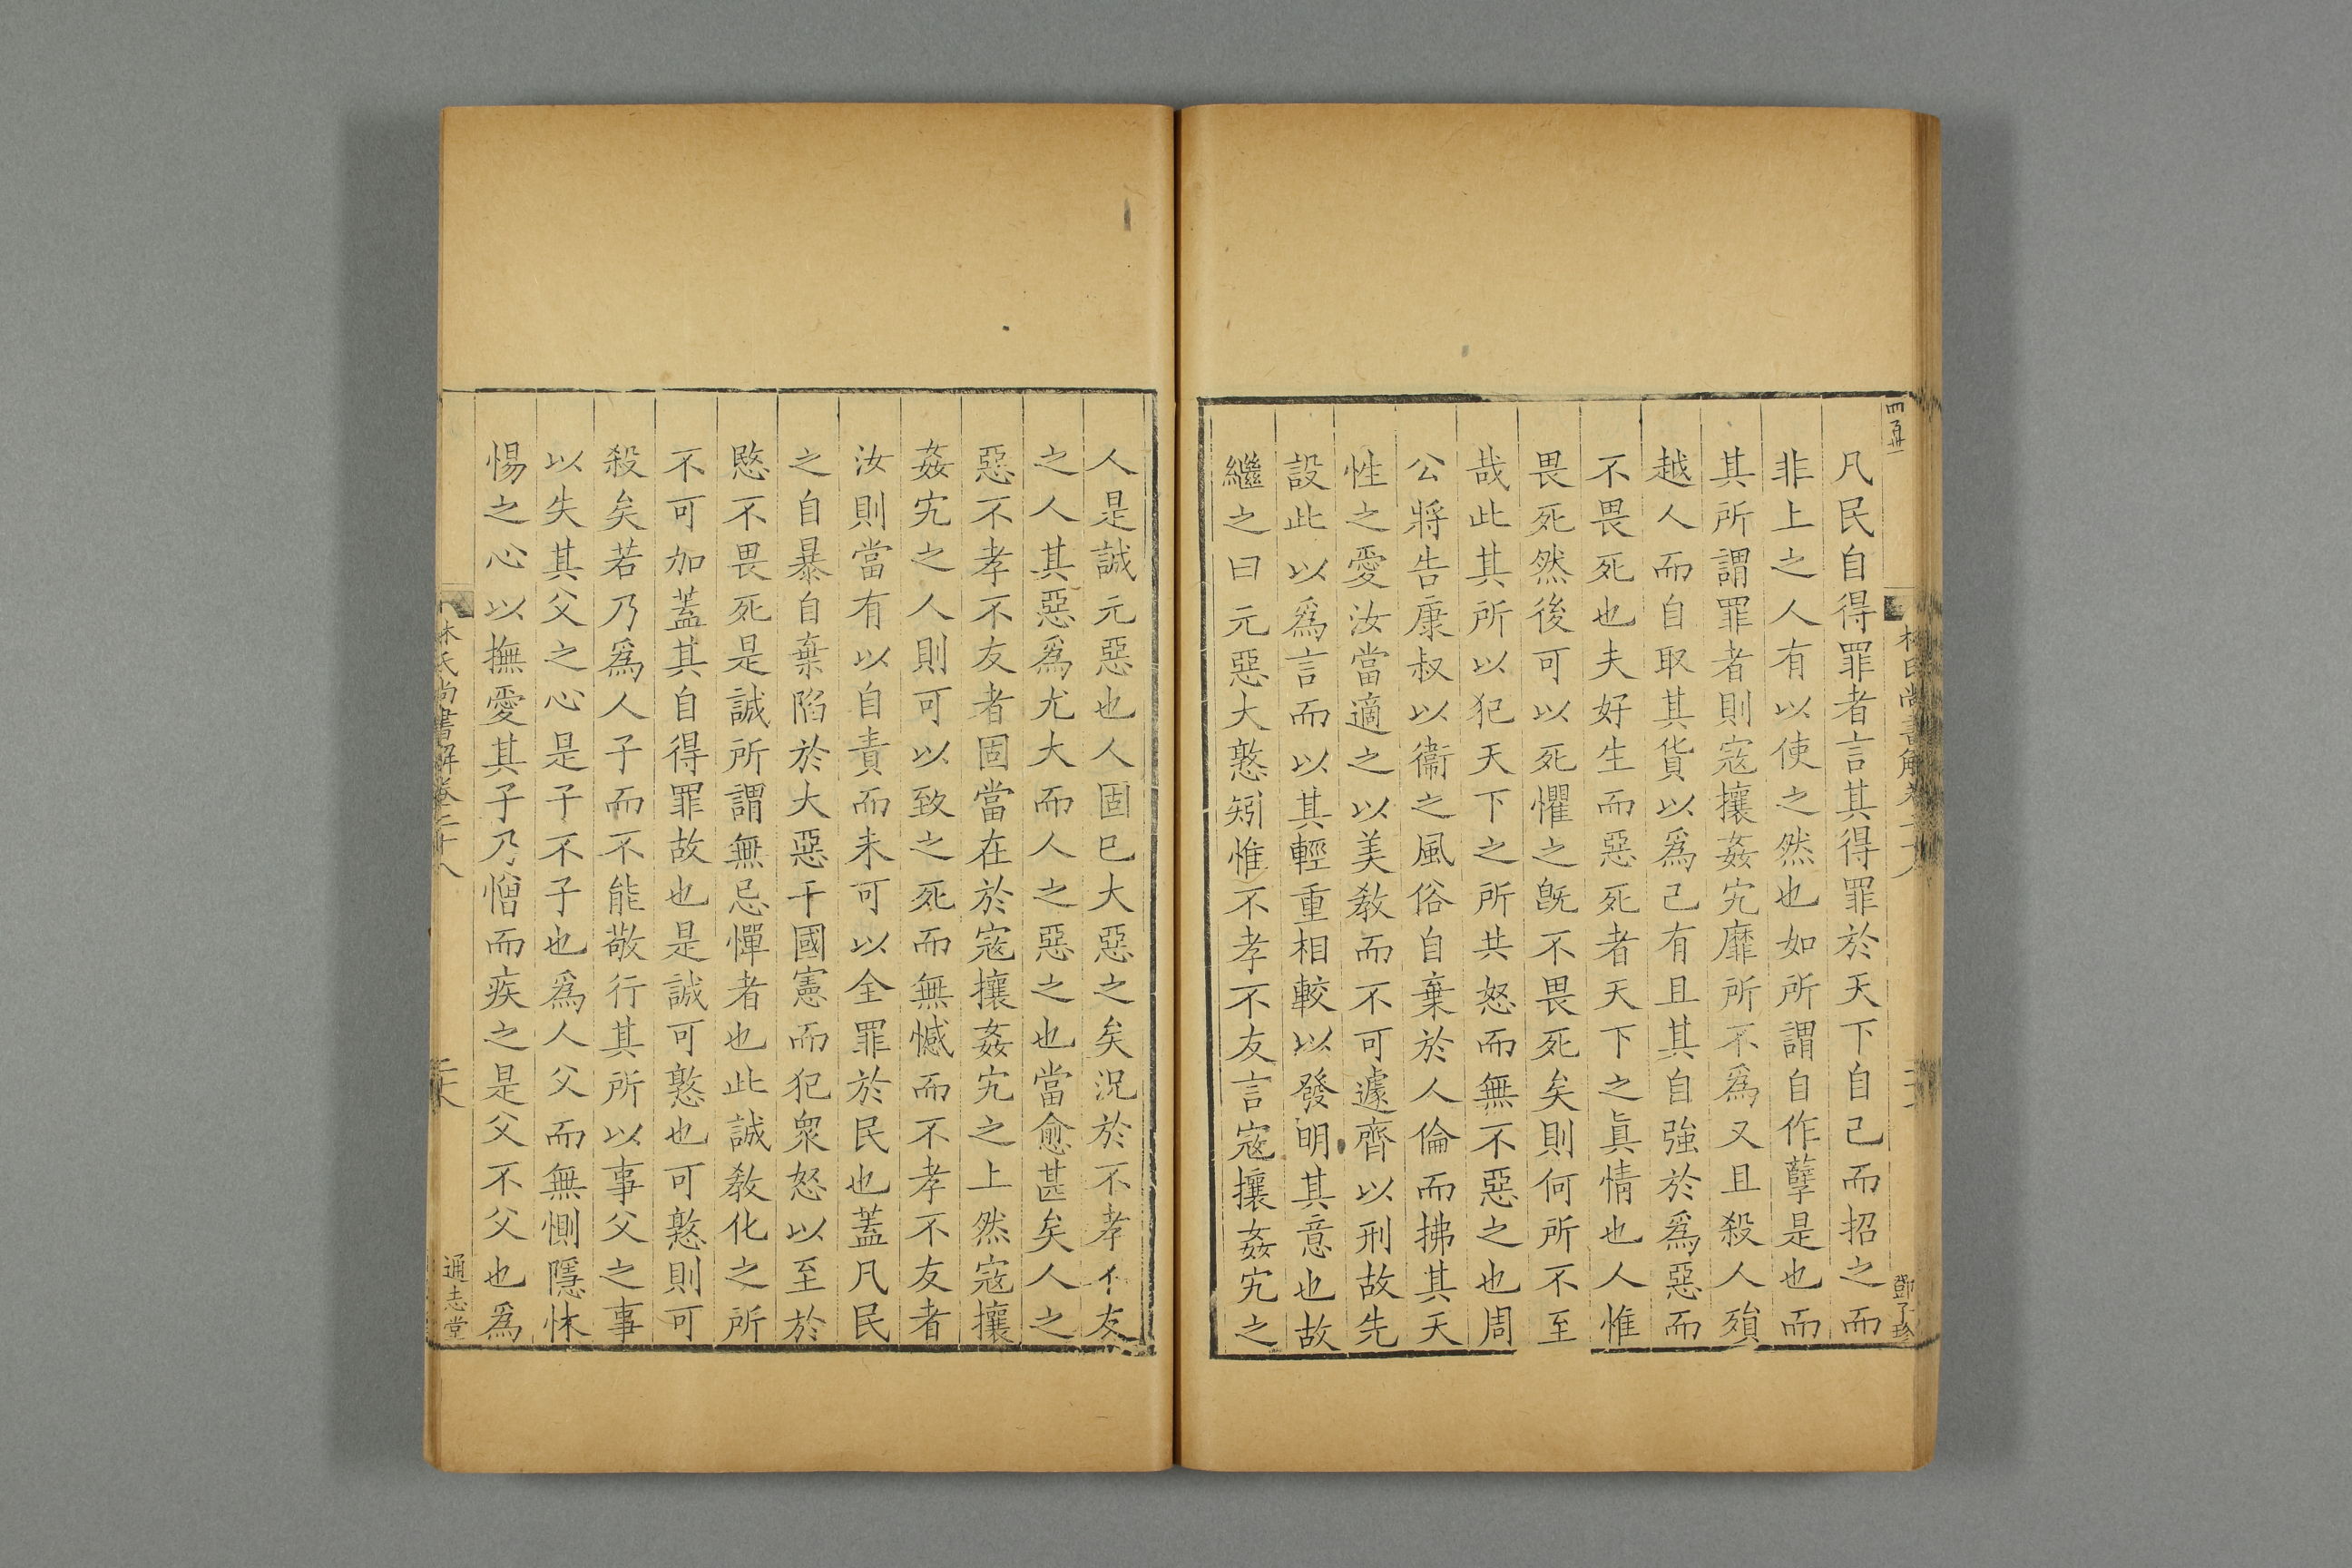 凡民自得罪者言其得罪於天下自己而招之而
非上之人有以使之然也如所謂自作孽是也而
其所謂罪者則寇攘姦宄靡所不爲又且殺人殞
越人而自取其貨以爲己有且其自強於爲惡而
不畏死也夫好生而惡死者天下之眞情也人惟
畏死然後可以死懼之旣不畏死矣則何所不至
哉此其所以犯天下之所共怒而無不惡之也周
公將告康叔以衞之風俗自棄於人倫而拂其天
性之愛汝當適之以美敎而不可遽齊以刑故先
設此以爲言而以其輕重相較以發明其意也故
繼之曰元惡大憝矧惟不孝不友言寇攘姦宄之
人是誠元惡也人固已大惡之矣況於不孝不友
之人其惡爲尤大而人之惡之也當愈甚矣人之
惡不孝不友者固當在於寇攘姦宄之上然寇攘
姦宄之人則可以致之死而無憾而不孝不友者
汝則當有以自責而未可以全罪於民也蓋凡民
之自暴自棄陷於大惡干國憲而犯衆怒以至於
愍不畏死是誠所謂無忌憚者也此誠敎化之所
不可加蓋其自得罪故也是誠可憝也可憝則可
殺矣若乃爲人子而不能敬行其所以事父之事
以失其父之心是子不子也爲人父而無惻隱怵
惕之心以撫愛其子乃憎而疾之是父不父也爲
林氏尚書解卷二十八
通志堂